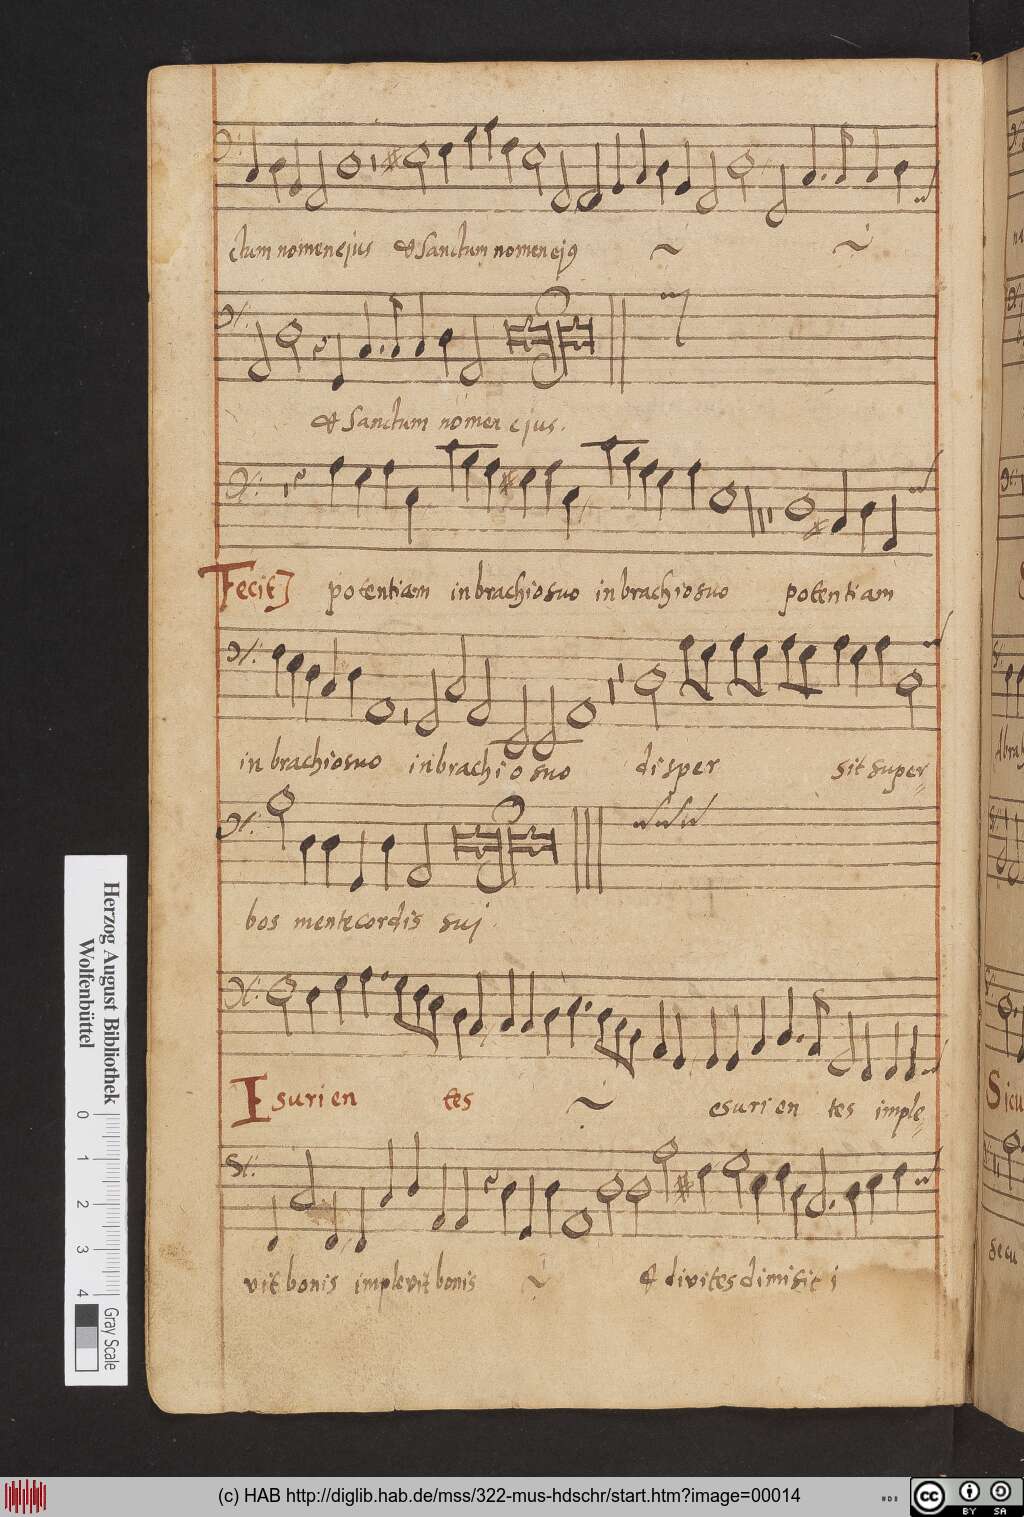 ctum nomen ejus & Sanctum nomen ej9
& Sanctum nomen ejus.
Fecit potentiam in brachio suo in brachio suo potentiam
in brachio suo in brachio suo disper sit super=
bos mente cordis suj.
Esurien tes esurien tes imple=
vit bonis implevit bonis & divites dimisit i
Herzog August Bibliothek
Wolfenbüttel
0 1 2 3 4
Gray Scale
(c) HAB http://diglib.hab.de/mss/322-mus-hdschr/start.htm?image=00014
cc BY SA